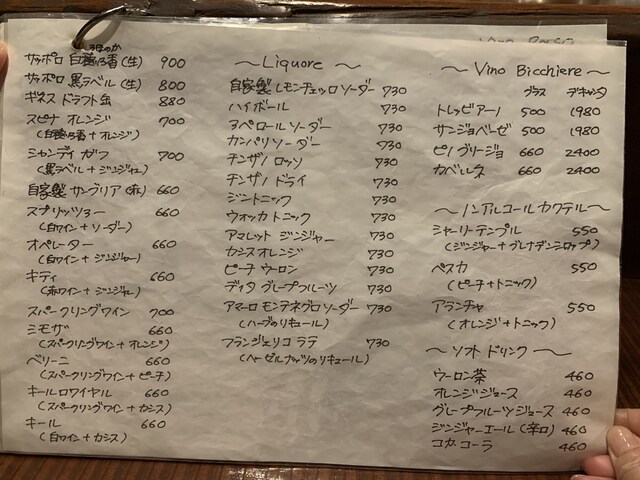 しろほのか
サッポロ 白穂乃香(生) 900
サッポロ 黒ラベル(生) 800
ギネス ドラフト缶 880
スピナ オレンジ 700
(白穂乃香+オレンジ)
シャンディ ガフ 700
(黒ラベル+ジンジャー)
自家製 サングリア(赤) 660
スプリッツァー 660
(白ワイン+ソーダー)
オペレーター 660
(白ワイン+ジンジャー)
キティ 660
(赤ワイン+ジンジャー)
スパークリングワイン 700
ミモザ 660
(スパークリングワイン+オレンジ)
ベリーニ 660
(スパークリングワイン+ピーチ)
キールロワイヤル 660
(スパークリングワイン+カシス)
キール 660
(白ワイン+カシス)
~Liquore~
自家製 レモンチェッロソーダー 730
ハイボール 730
アペロール ソーダー 730
カンパリソーダー 730
チンザノ ロッソ 730
チンザノ ドライ 730
ジントニック 730
ウォッカ トニック 730
アマレット ジンジャー 730
カシスオレンジ 730
ピーチ ウーロン 730
ディタ グレープフルーツ 730
アマーロ モンテネグロ ソーダー 730
(ハーブのリキュール)
フランジェリコ ラテ 730
(ヘーゼルナッツのリキュール)
~Vino Bicchiere~
グラス デキャンタ
トレッビアーノ 500 1980
サンジョベーゼ 500 1980
ピノ グリージョ 660 2400
カベルネ 660 2400
~ノンアルコール カクテル~
シャーリーテンプル 550
(ジンジャー+グレナデンシロップ)
ペスカ 550
(ピーチ+トニック)
アランチャ 550
(オレンジ+トニック)
~ソフト ドリンク~
ウーロン茶 460
オレンジジュース 460
グレープフルーツジュース 460
ジンジャーエール(辛口) 460
コカ コーラ 460